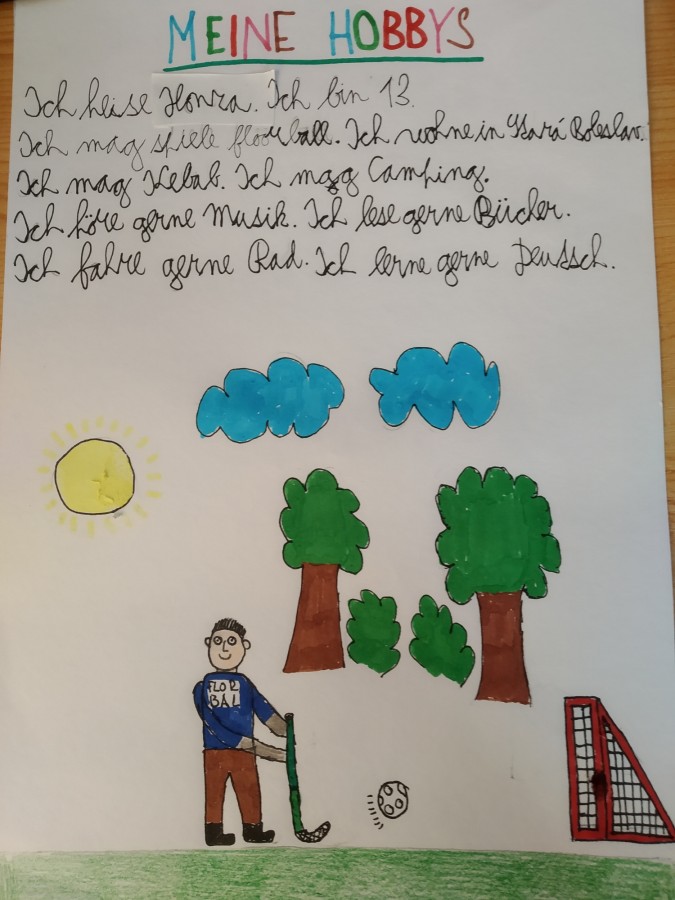 MEINE HOBBYS
Ich heise Honza. Ich bin 13.
Ich mag spiele floorball. Ich wohne in Stará Boleslav.
Ich mag Kebab. Ich mag Camping.
Ich höre gerne Musik. Ich lese gerne Bücher.
Ich fahre gerne Rad. Ich lerne gerne Deutsch.
FLOR
BAL